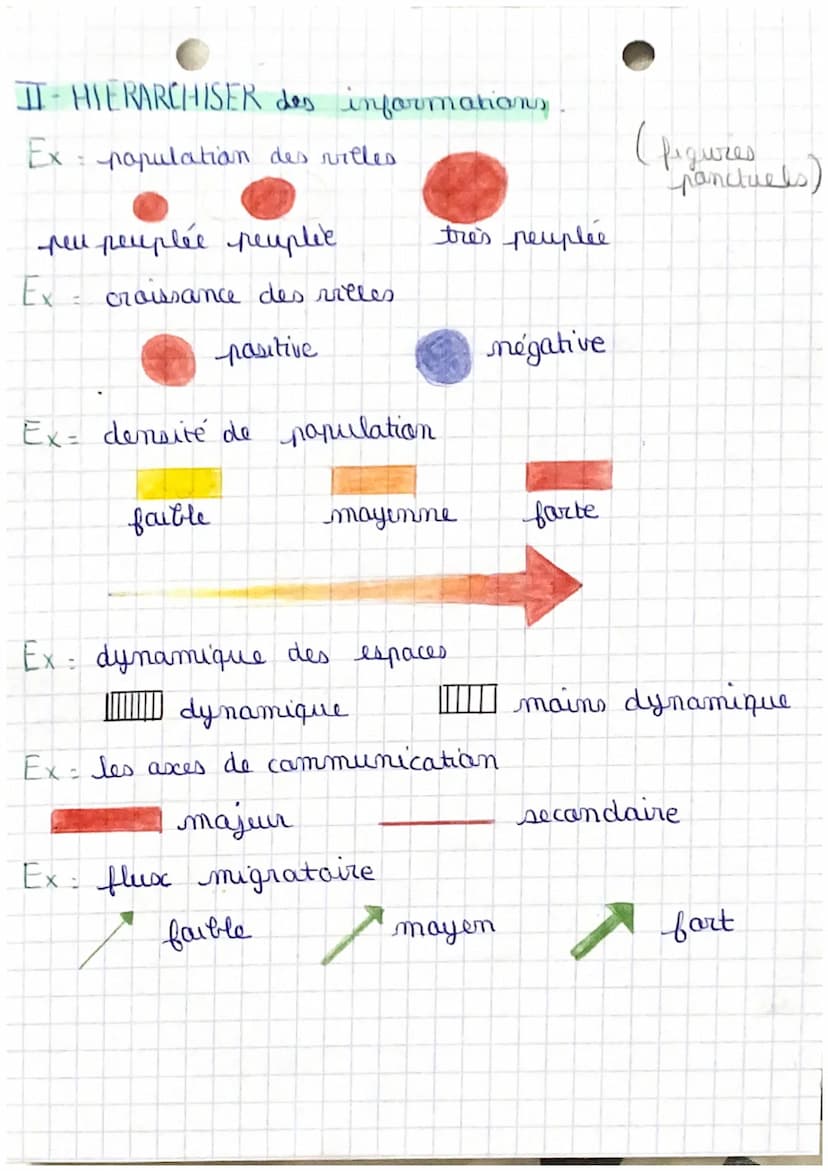 II - HIÉRARCHISER des informations.
Ex : population des villes
(figures
ponctuels)
peu peuplée peuplée très peuplée
Ex : croissance des villes
positive négative
Ex : densité de population
faible moyenne forte
Ex : dynamique des espaces
dynamique moins dynamique
Ex : les axes de communication
majeur secondaire
Ex : flux migratoire
faible moyen fort